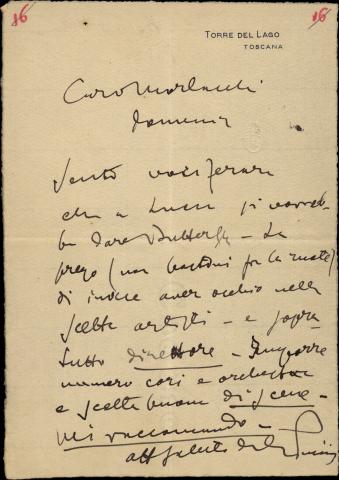 16 16
TORRE DEL LAGO
TOSCANA
Caro Marlacchi
domenica
Sento vociferare
che a Lucca si vorreb-
be dare Butterfly - La
prego (non bastoni fra le ruote)
di invece aver occhio nella
scelta artisti - e sopra
tutto direttore - Imporre
numero cori e orchestra
e scelta buona di scene -
Mi raccomando -
aff saluti del